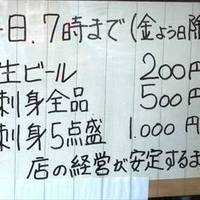 日.7時まで(金よう日除
生ビール 200円
刺身全品 500円
刺身5点盛 1.000円
店の経営が安定するま